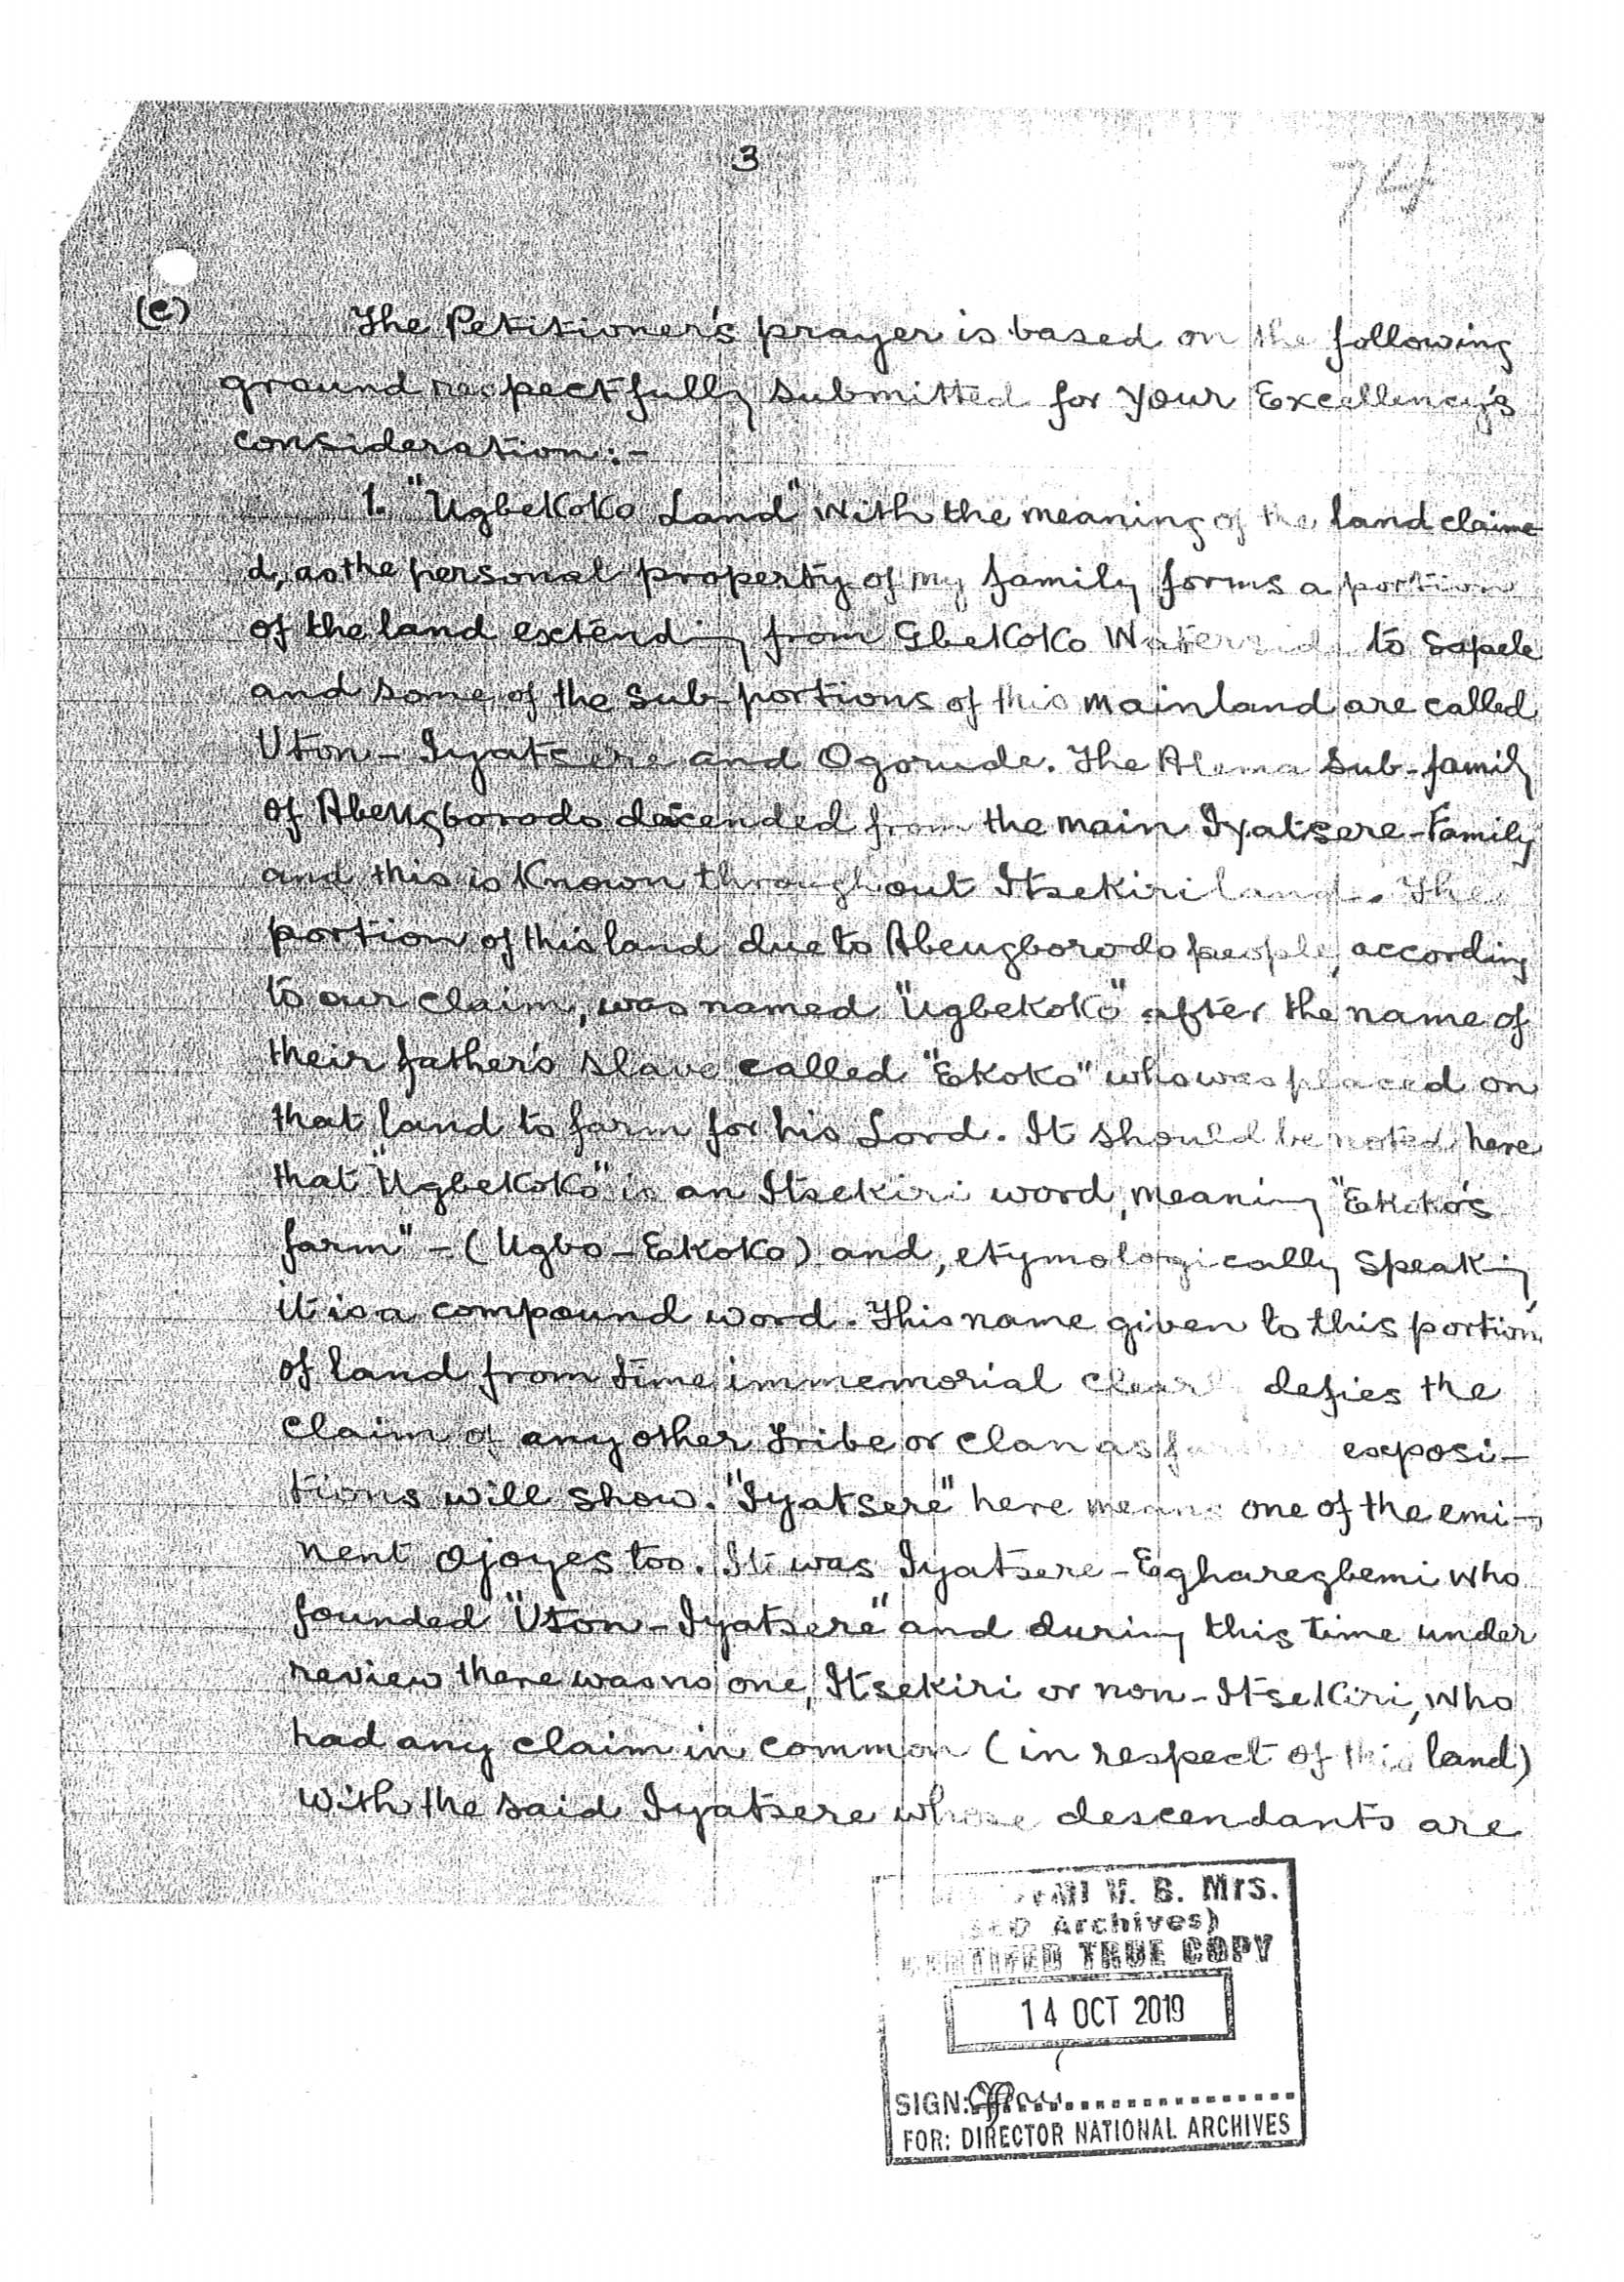 3
(c) The Petitioner's prayer is based on the following
ground respectfully submitted for your Excellency's
consideration:-
1. "Ugbekoko Land" with the meaning of the land claime
d, as the personal property of my family forms a portion
of the land extending from Gbekoko Waterside to Sapele
and some of the sub-portions of this mainland are called
Uton-Iyatsere and Ogorude. The Alema sub-family
of Abeugborodo descended from the main Iyatsere-Family
and this is known throughout Itsekiri land. The
portion of this land due to Abeugborodo people, according
to our claim, was named "Ugbekoko" after the name of
their father's slave called "Ekoko" who was placed on
that land to farm for his Lord. It should be noted here
that "Ugbekoko" is an Itsekiri word, meaning "Ekoko's
farm" - (Ugbo-Ekoko) and, etymologically speaking,
it is a compound word. This name given to this portion
of land from time immemorial clearly defies the
claim of any other tribe or clan as further exposi-
tions will show. "Iyatsere" here means one of the emi-
nent Ojoyes too. It was Iyatsere-Egharegbemi who
founded "Uton-Iyatsere" and during this time under
review there was no one, Itsekiri or non-Itsekiri, who
had any claim in common (in respect of this land)
with the said Iyatsere whose descendants are
V. B. Mrs.
Archives)
CERTIFED TRUE COPY
14 OCT 2019
SIGN:
FOR: DIRECTOR NATIONAL ARCHIVES